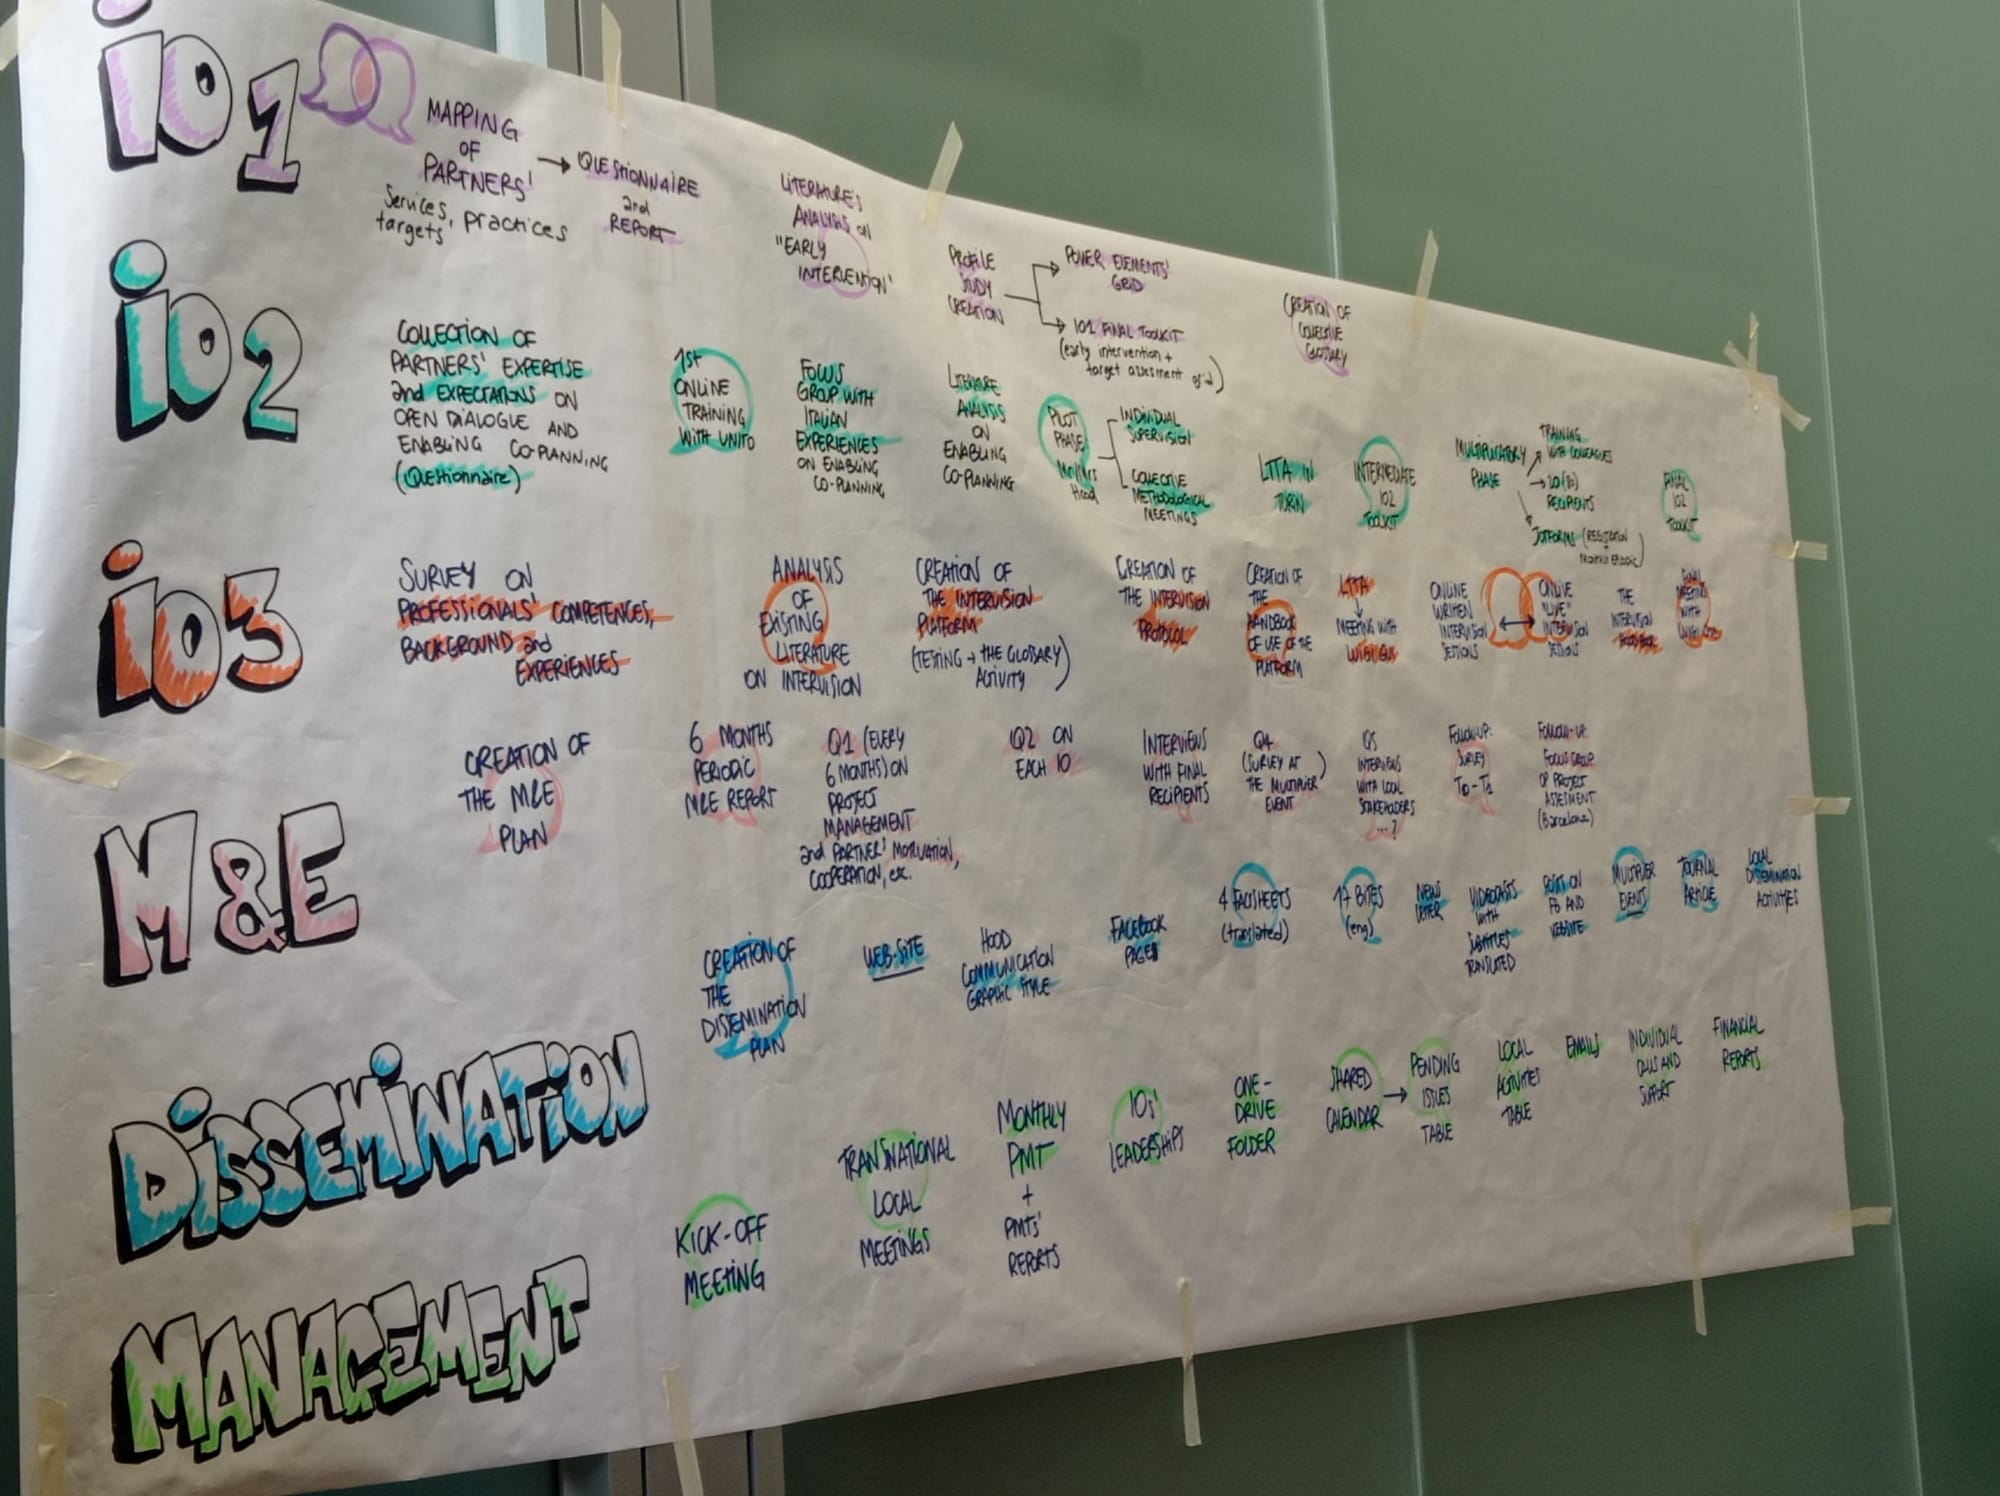 iO1
MAPPING
OF
PARTNERS'
Services, practices
targets
→ QUESTIONNAIRE
and
REPORT
LITERATURE'S
ANALYSIS on
"EARLY
INTERVENTION"
PROFILE
STUDY
CREATION
POWER ELEMENTS'
GRID
IO1 FINAL TOOLKIT
(early intervention +
target assesment grid)
CREATION OF
COLLECTIVE
GLOSSARY
iO2
COLLECTION OF
PARTNERS' EXPERTISE
and EXPECTATIONS ON
OPEN DIALOGUE AND
ENABLING CO-PLANNING
(Questionnaire)
1st
ONLINE
TRAINING
WITH UNITO
FOCUS
GROUP WITH
ITALIAN
EXPERIENCES
ON ENABLING
CO-PLANNING
LITERATURE
ANALYSIS
ON
ENABLING
CO-PLANNING
PILOT
PHASE
Mr/Mrs
Hood
INDIVIDUAL
SUPERVISION
COLLECTIVE
METHODOLOGICAL
MEETINGS
LTTA IN
TURIN
INTERMEDIATE
IO2
TOOLKIT
MULTIPLICATORY
PHASE
TRAINING
WITH COLLEAGUES
RECIPIENTS
JOTFORMS (REGISTRATION
FINAL
IO2
TOOLKIT
iO3
SURVEY ON
PROFESSIONALS' COMPETENCES,
BACKGROUND and
EXPERIENCES
ANALYSIS
OF
EXISTING
LITERATURE
ON INTERVISION
CREATION OF
THE INTERVISION
PLATFORM
(TESTING → THE GLOSSARY
ACTIVITY)
CREATION OF
THE INTERVISION
PROTOCOL
CREATION OF
THE
HANDBOOK
OF USE OF THE
PLATFORM
LTTA
MEETING WITH
ONLINE
WRITTEN
INTERVISION
SESSIONS
↔
ONLINE
"LIVE"
INTERVISION
SESSIONS
THE
INTERVISION
FINAL
MEETING
WITH
M&E
CREATION OF
THE M&E
PLAN
6 MONTHS
PERIODIC
M&E REPORT
Q1 (EVERY
6 MONTHS) ON
PROJECT
MANAGEMENT
and PARTNER' MOTIVATION,
COOPERATION, etc.
Q2 ON
EACH IO
INTERVIEWS
WITH FINAL
RECIPIENTS
Q4
(SURVEY AT
THE MULTIPLIER
EVENT)
Q5
INTERVIEWS
WITH LOCAL
STAKEHOLDERS
...?
Follow-up:
SURVEY
T0-T1
Follow-up:
FOCUS GROUP
OF PROJECT
ASSESMENT
(Barcelona)
DiSSEMiNATiON
CREATION OF
THE
DISSEMINATION
PLAN
WEB-SITE
HOOD
COMMUNICATION
GRAPHIC STYLE
FACEBOOK
PAGE
4 FACTSHEETS
(translated)
17 BITES
(eng)
NEWS
LETTER
VIDEOCASTS
WITH
SUBTITLES
TRANSLATED
POST ON
FB AND
WEBSITE
MULTIPLIER
EVENTS
JOURNAL
ARTICLE
LOCAL
DISSEMINATION
ACTIVITIES
MANAGEMENT
KICK-OFF
MEETING
TRANSNATIONAL
LOCAL
MEETINGS
MONTHLY
PMT
+
PMTs'
REPORTS
IOs'
LEADERSHIPS
ONE-
DRIVE
FOLDER
SHARED
CALENDAR →
PENDING
ISSUES
TABLE
LOCAL
ACTIVITIES
TABLE
EMAILS
INDIVIDUAL
CALLS AND
SUPPORT
FINANCIAL
REPORTS